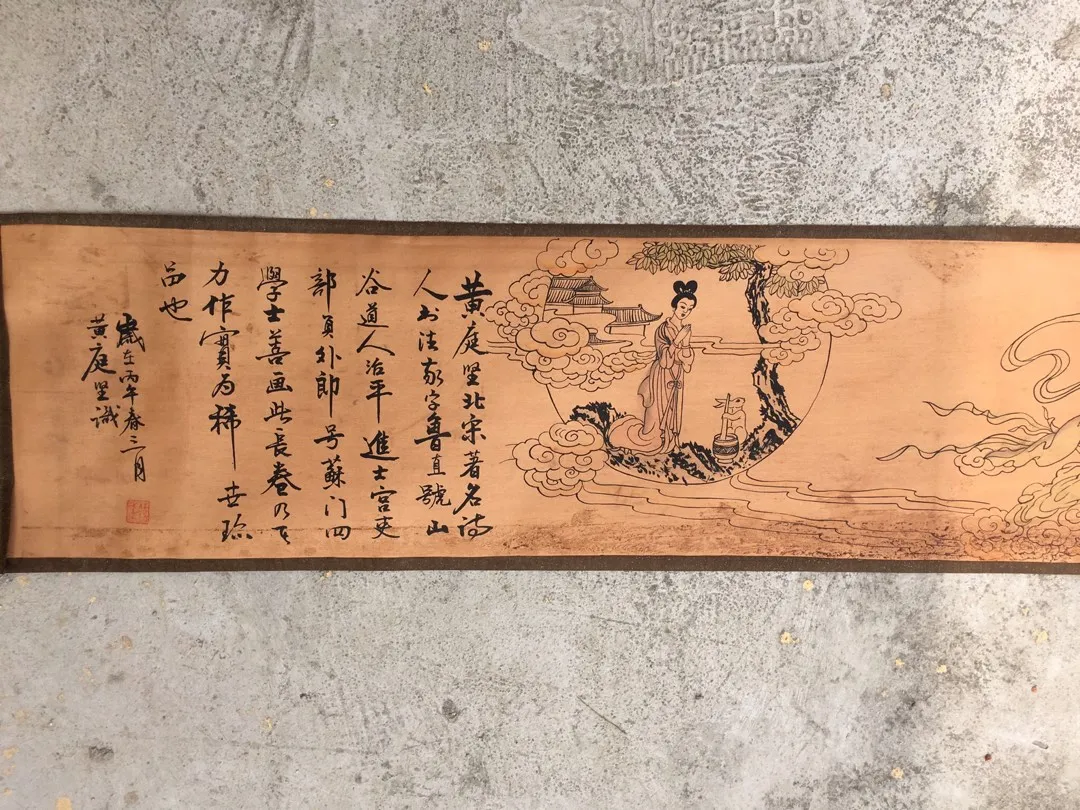 黄庭坚北宋著名诗
人书法家字魯直號山
谷道人治平進士官吏
部员外郎号蘇门四
學士善画此長卷乃其
力作實为稀世珍
品也
歲在丙午春三月
黄庭坚識